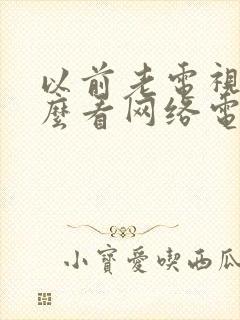 以前老電視
麼看网络電
小寶愛喫西瓜